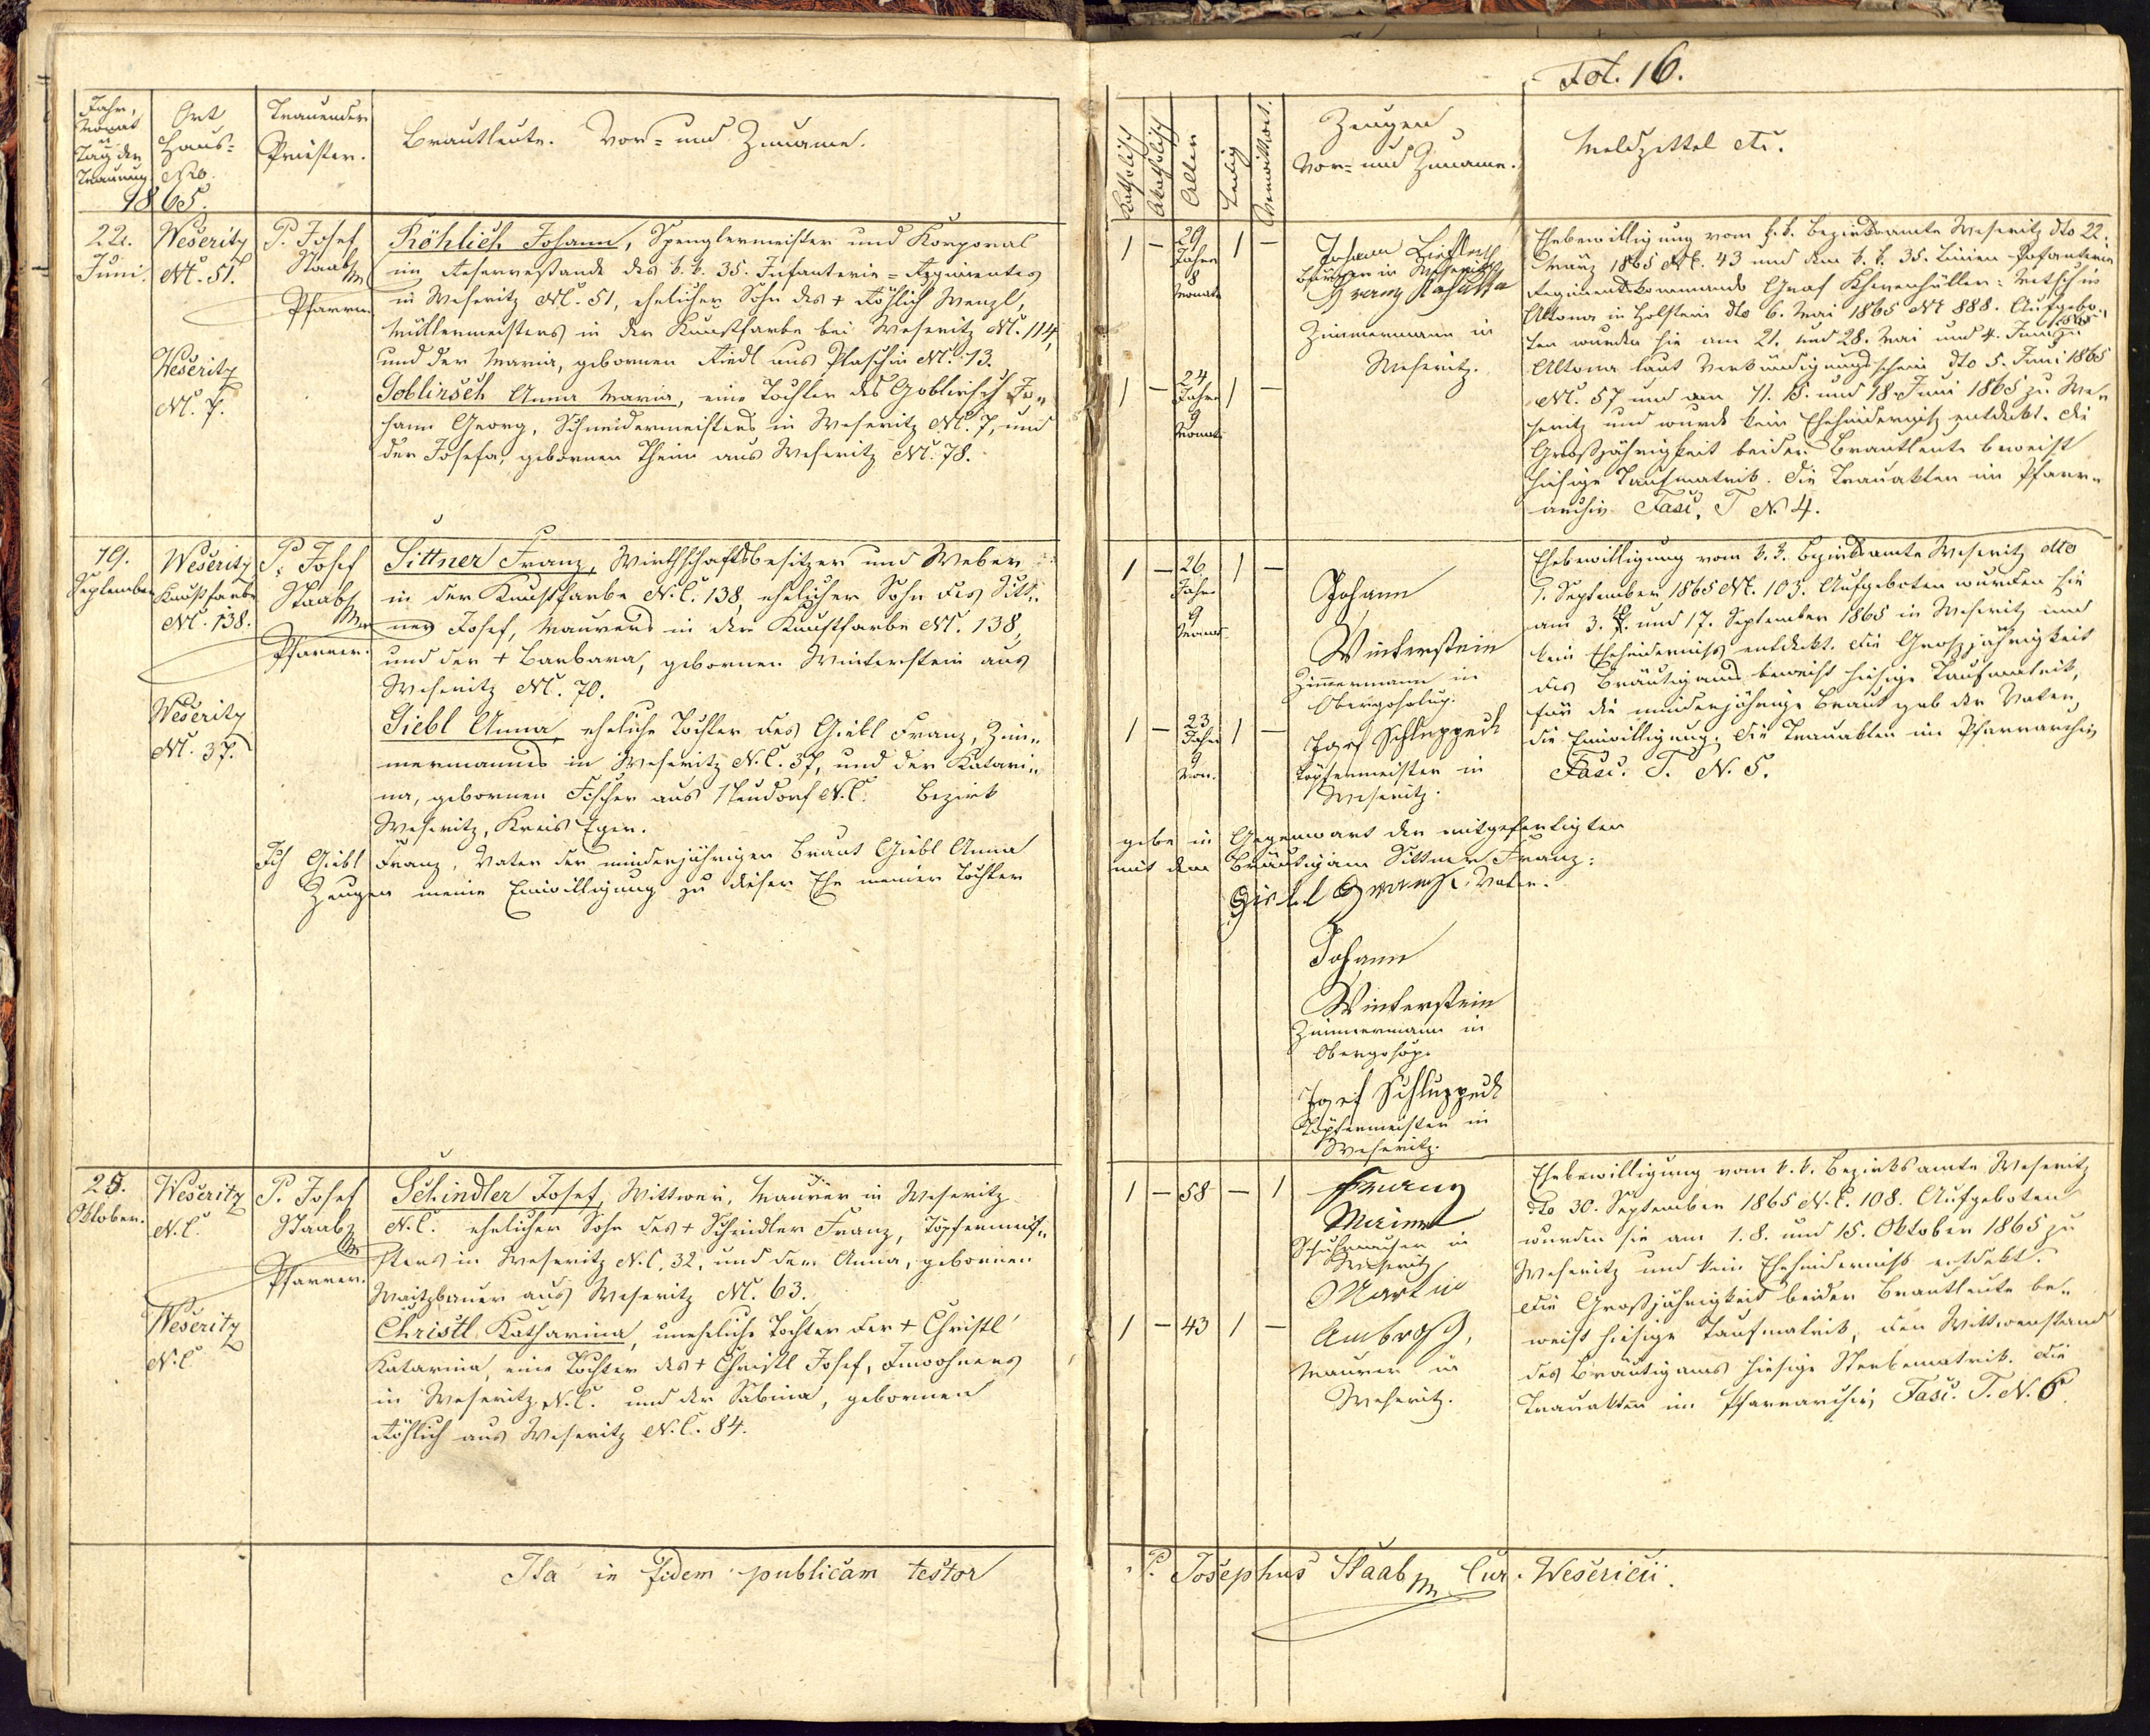 Fol. 16.
Jahr,
Monat
u.
Tag der
Trauung
1865.
Ort
Haus-
Nro.
Trauender
Priester.
Brautleute. Vor- und Zuname.
Katholisch
Akatholisch
Alter
Ledig
Verwittwet.
Zeugen
Vor- und Zuname.
Meldzettel etc.
22.
Juni.
Weseritz
NC. 51.
Weseritz
NC. 7.
P. Josef
Staab
Pfarrer.
Röhlich Johann, Spenglermeister und Korporal
im Reservestande des k. k. 35. Infanterie-Regimentes
in Weseritz NC. 51, ehelicher Sohn des + Röhlich Wenzl,
Müllermeisters in der Kunstfarbe bei Weseritz NC. 114,
und der Maria, gebornen Riedl aus Plaschin NC. 13.
Goblirsch Anna Maria, eine Tochter des Goblirsch Jo-
hann Georg, Schneidermeisters in Weseritz NC. 7, und
der Josefa, gebornen Theim aus Weseritz NC. 78.
1 – 29 Jahre 8 Monate 1 –
1 – 24 Jahre 9 Monat 1 –
Johann
Bürger in Weseritz
Franz
Zimmermann in
Weseritz.
Ehebewilligung vom k. k. Bezirksamte Weseritz dto 22.
März 1865 NC. 43 und dem k. k. 35. Linien-Infanterie
Regimentskommando Graf Khevenhüller-Metsch in
Altona in Holstein dto 6. Mai 1865 NC 888. Aufgebo-
ten wurden sie am 21. und 28. Mai und 4. Juni 1865 zu
Altona laut Verkündigungsschein dto 5. Juni 1865
NC. 57 und am 11. 15. und 18. Juni 1865 zu We-
seritz und wurde kein Ehehinderniß entdekt. Die
Großjährigkeit beider Brautleute beweist
hiesige Taufmatrik. Die Trauakten im Pfarr-
archiv Fasc. T N. 4.
19.
September
Weseritz
Kunstfarbe
NC. 138.
Weseritz
NC. 37.
P. Josef
Staab
Pfarrer.
Sittner Franz, Wirthschaftsbesitzer und Weber
in der Kunstfarbe N.C. 138, ehelicher Sohn des Sitt-
ner Josef, Maurers in der Kunstfarbe NC. 138,
und der + Barbara, gebornen Winterstein aus
Weseritz NC. 70.
Giebl Anna, eheliche Tochter des Giebl Franz, Zim-
mermanns in Weseritz N.C. 37, und der Katari-
na, gebornen Fischer aus Neudorf N.C. Bezirk
Weseritz, Kreis Eger.
1 – 26 Jahre 9 Monat 1 –
1 – 23 Jahre 9 Mon. 1 –
Johann
Winterstein
Zimmermann in
Josef Schluppeck
Töpfermeister in
Weseritz.
Ehebewilligung vom k. k. Bezirksamte Weseritz dto
1. September 1865 NC. 105. Aufgeboten wurden sie
am 3. 8. und 17. September 1865 in Weseritz und
kein Ehehinderniß entdekt. Die Großjährigkeit
des Bräutigams beweist hiesige Taufmatrik,
für die minderjährige Braut gab der Vater
die Einwilligung. Die Trauakten im Pfarrarchiv
Fasc. T. N. 5.
Ich Giebl Franz, Vater der minderjährigen Braut Giebl Anna gebe in Gegenwart der mitgefertigten
Zeugen meine Einwilligung zu dieser Ehe meiner Tochter mit dem Bräutigam Sittner Franz:
Giebl Franz, Vater.
Johann
Winterstein
Zimmermann in
Josef Schluppeck
Töpfermeister in
Weseritz.
25.
Oktober.
Weseritz
N.C.
Weseritz
N.C.
P. Josef
Staab
Pfarrer.
Schindler Josef, Wittwer, Maurer in Weseritz
N.C. ehelicher Sohn des + Schindler Franz, Töpfermei-
sters in Weseritz N.C. 32, und der Anna, gebornen
Waitzbauer aus Weseritz NC. 63.
Christl Katharina, uneheliche Tochter der + Christl
Katarina, eine Tochter des + Christl Josef, Inwohners
in Weseritz N.C. und der Sabina, gebornen
Röhlich aus Weseritz N.C. 84.
1 – 58 – 1
1 – 43 1 –
Franz
Schuhmacher in
Weseritz
Martin
Ambrosch,
Maurer in
Weseritz.
Ehebewilligung vom k. k. Bezirksamte Weseritz
dto 30. September 1865 N.C. 108. Aufgeboten
wurden sie am 1. 8. und 15. Oktober 1865 zu
Weseritz und kein Ehehinderniß entdekt.
Die Großjährigkeit beider Brautleute be-
weist hiesige Taufmatrik, den Wittwenstand
des Bräutigams hiesige Sterbematrik. Die
Trauakten im Pfarrarchiv, Fasc. T. N. 6.
Ita in fidem publicam testor P. Josephus Staab Cur. Wesericii.